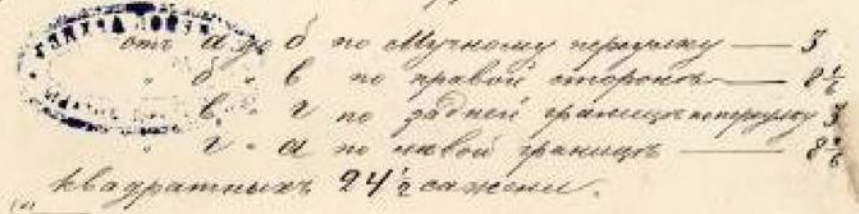 отъ а до б по Мучному переулку — 3
" б " в по правой сторонѣ — 8 1/6
" в " г по задней границѣ переулку 3
" г " а по лѣвой границѣ — 8 1/6
квадратныхъ 24 1/2 сажени.